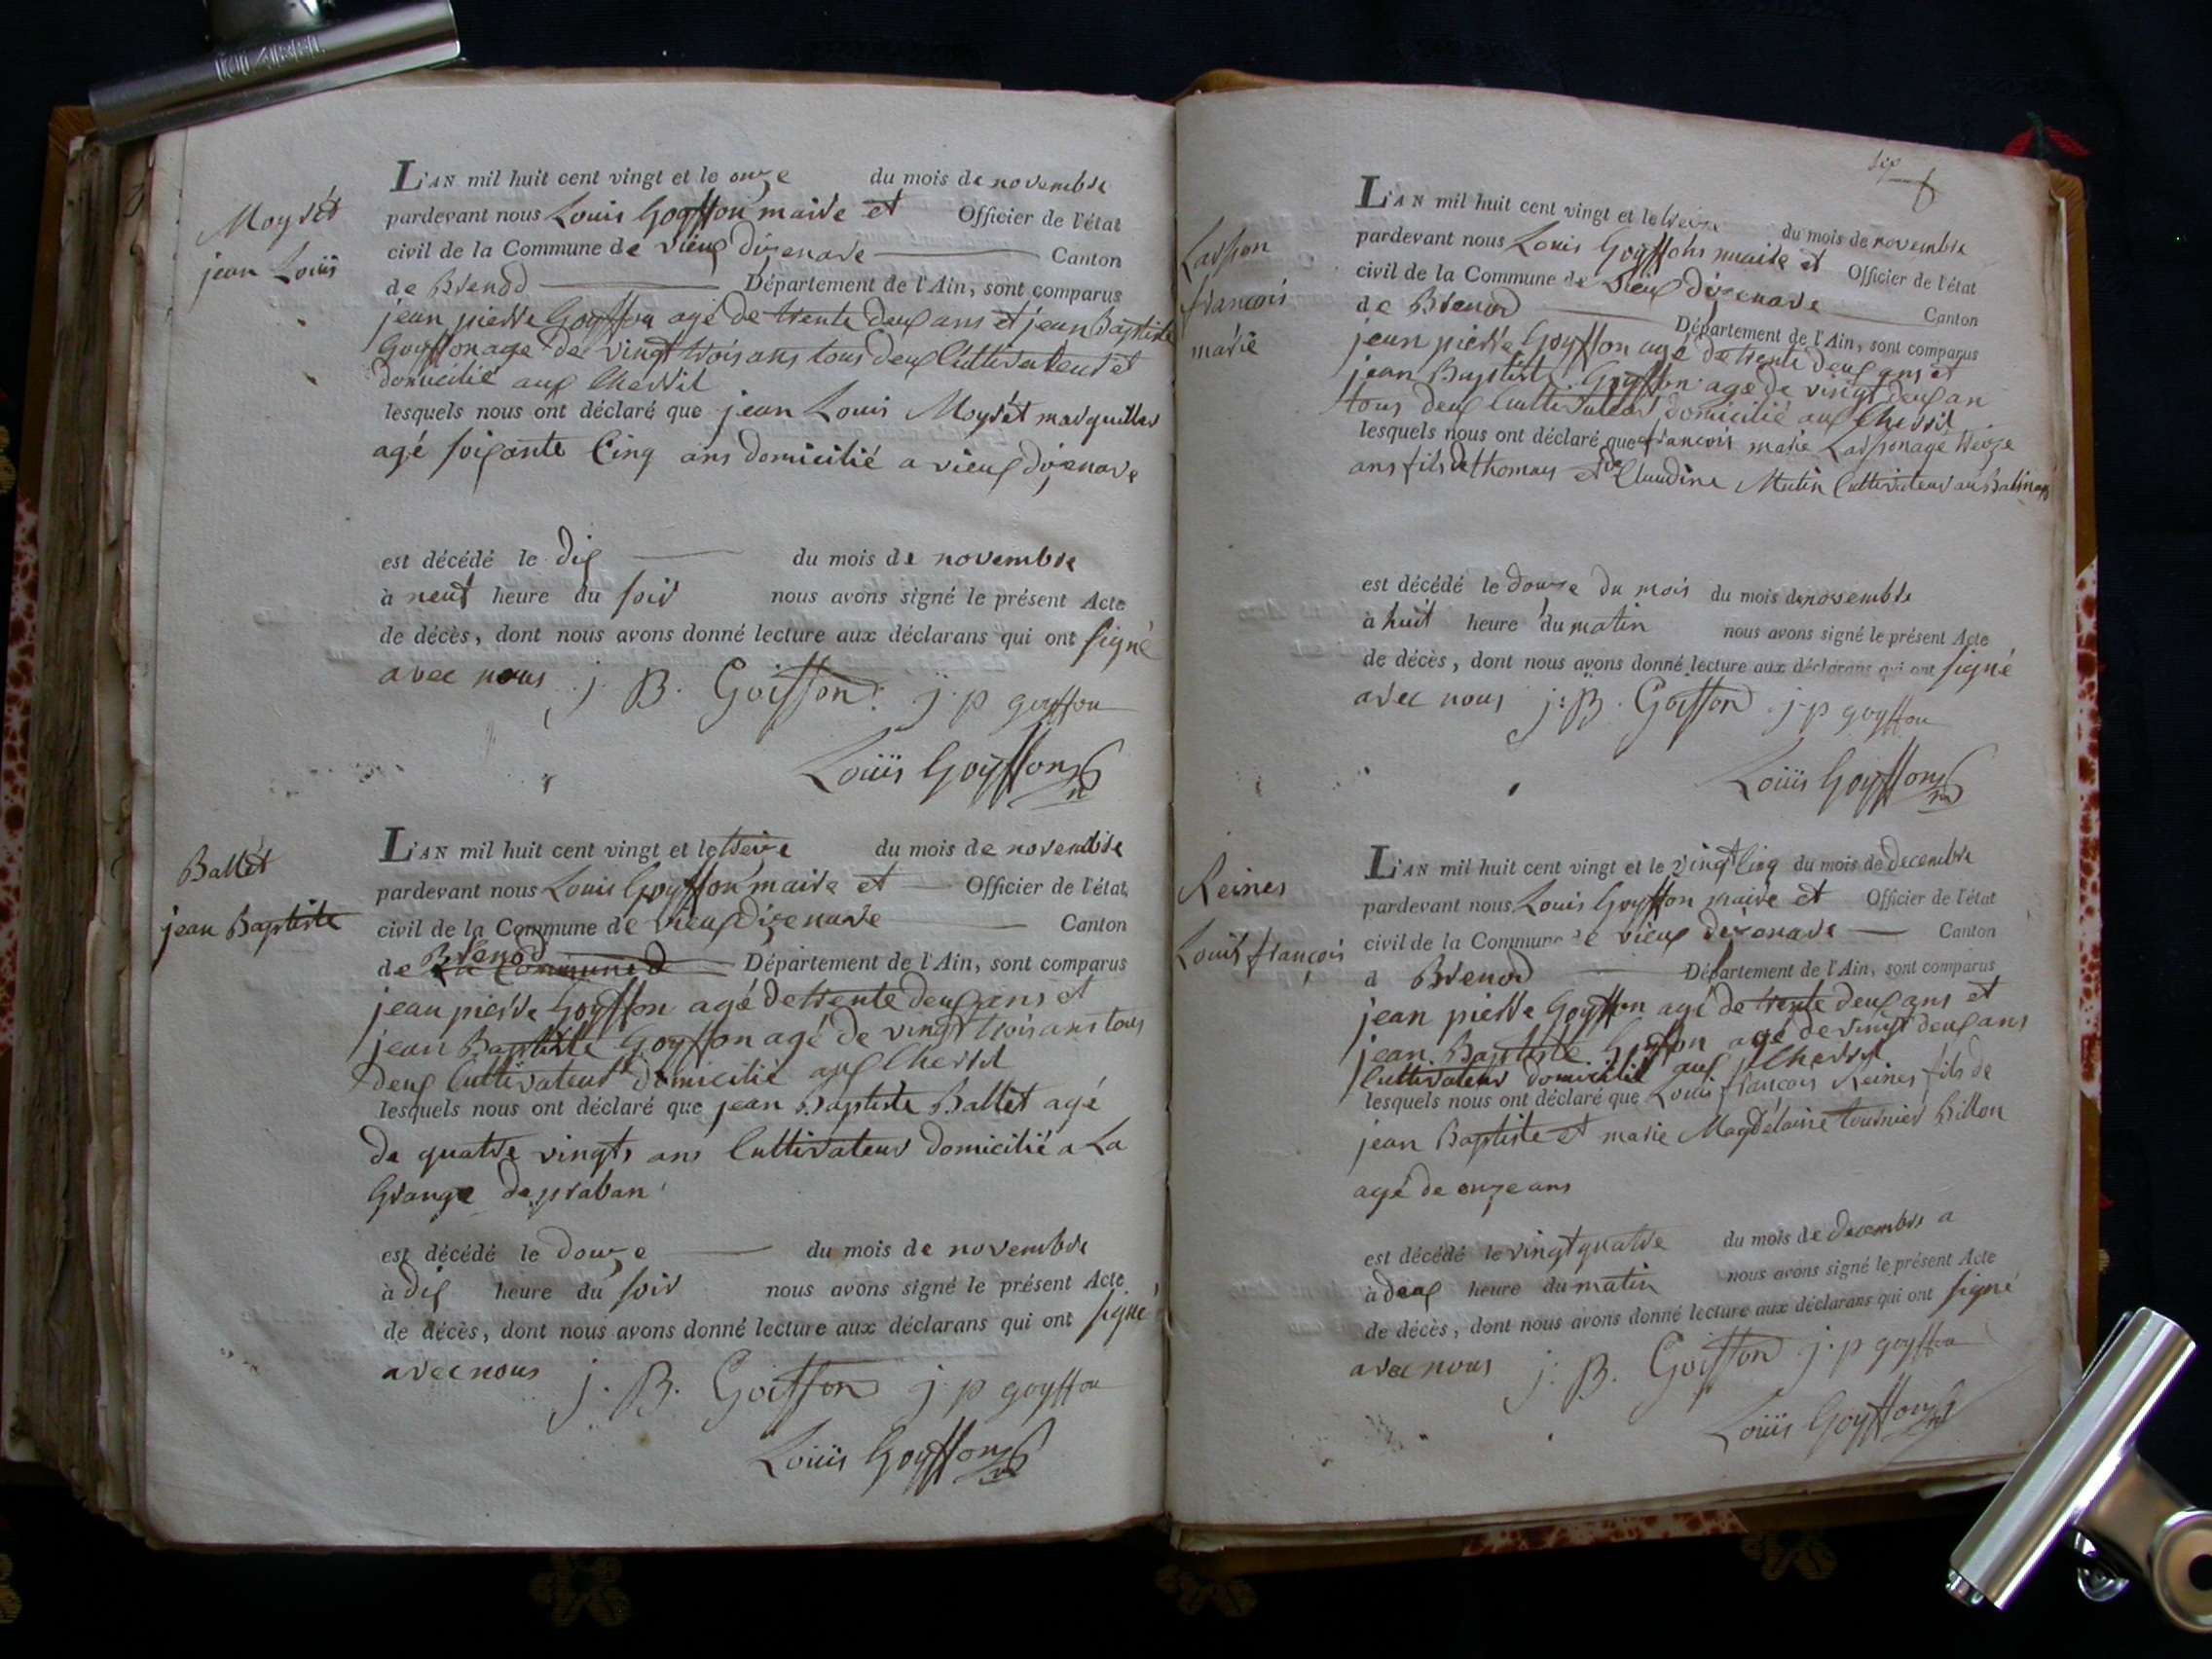 Moyrét
jean Louis
L'AN mil huit cent vingt et le onze du mois de novembre
pardevant nous Louis Goyffon maire et Officier de l'état
civil de la Commune de vieux dizenave Canton
de Brenod Département de l'Ain, sont comparus
jean pierre Goyffon agé de trente deux ans et jean Baptiste
Goyffon age de vingt trois ans tous deux Cultivateur et
domicilié aux Cherril
lesquels nous ont déclaré que jean Louis Moyrét marguiller
agé soixante Cinq ans domicilié a vieux dizenave
est décédé le dix du mois de novembre
à neuf heure du soir nous avons signé le présent Acte
de décès, dont nous avons donné lecture aux déclarans qui ont signé
avec nous j. B. Goiffon j. p goyffon
Louis Goyffon
Ballét
jean Baptiste
L'AN mil huit cent vingt et le treize du mois de novembre
pardevant nous Louis Goyffon maire et Officier de l'état
civil de la Commune de vieux dizenave Canton
de Brenod Département de l'Ain, sont comparus
jean pierre Goyffon agé de trente deux ans et
jean Baptiste Goyffon agé de vingt trois ans tous
deux Cultivateur domicilié aux Cherril
lesquels nous ont déclaré que jean Baptiste Ballét agé
de quatre vingts ans Cultivateur domicilié a La
Grange de praban
est décédé le douze du mois de novembre
à dix heure du soir nous avons signé le présent Acte
de décès, dont nous avons donné lecture aux déclarans qui ont signé
avec nous j. B. Goiffon j. p goyffon
Louis Goyffon
Larson
francois
marie
L'AN mil huit cent vingt et le treize du mois de novembre
pardevant nous Louis Goyffon maire et Officier de l'état
civil de la Commune de vieux dizenave Canton
de Brenod Département de l'Ain, sont comparus
jean pierre Goyffon agé de trente deux ans et
jean Baptiste Goyffon age de vingt deux an
tous deux Cultivateur domicilié aux Cherril
lesquels nous ont déclaré que francois marie Larson age treize
ans fils de thomas et de Claudine Mutin Cultivateur au
est décédé le douze du mois du mois de novembre
à huit heure du matin nous avons signé le présent Acte
de décès, dont nous avons donné lecture aux déclarans qui ont signé
avec nous j. B. Goiffon j. p goyffon
Louis Goyffon
Reines
Louis françois
L'AN mil huit cent vingt et le vingt Cinq du mois de decembre
pardevant nous Louis Goyffon maire et Officier de l'état
civil de la Commune de vieux dizenave Canton
d Brenod Département de l'Ain, sont comparus
jean pierre Goyffon agé de trente deux ans et
jean Baptiste Goyffon agé de vingt deux ans
Cultivateur domicilié aux Cherril
lesquels nous ont déclaré que Louis francois Reines fils de
jean Baptiste et marie Magdelaine tournier Billon
agé de onze ans
est décédé le vingt quatre du mois de decembre a
à deux heure du matin nous avons signé le présent Acte
de décès, dont nous avons donné lecture aux déclarans qui ont signé
avec nous j. B. Goiffon j. p goyffon
Louis Goyffon